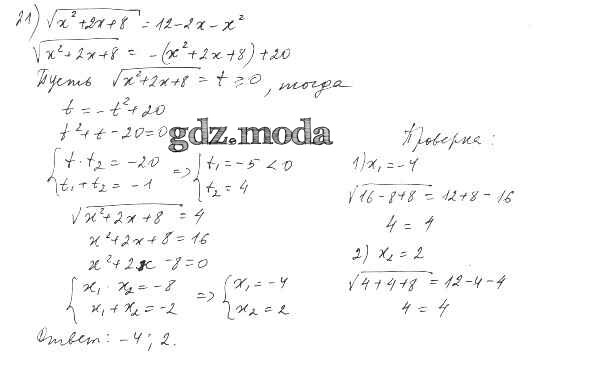 21) √(x²+2x+8) = 12-2x-x²
√(x²+2x+8) = -(x²+2x+8)+20
Пусть √(x²+2x+8) = t ≥ 0, тогда
t = -t²+20
t²+t-20=0
gdz.moda
{ t·t₂ = -20 => { t₁ = -5 < 0
t₁+t₂ = -1 t₂ = 4
√(x²+2x+8) = 4
x²+2x+8 = 16
x²+2x-8=0
{ x₁·x₂ = -8 => { x₁ = -4
x₁+x₂ = -2 x₂ = 2
Ответ: -4; 2.
Проверка:
1) x₁ = -4
√(16-8+8) = 12+8-16
4 = 4
2) x₂ = 2
√(4+4+8) = 12-4-4
4 = 4